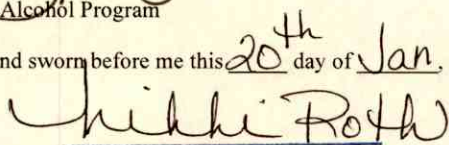 Alcohol Program
nd sworn before me this 20th day of Jan.
Nikki Roth